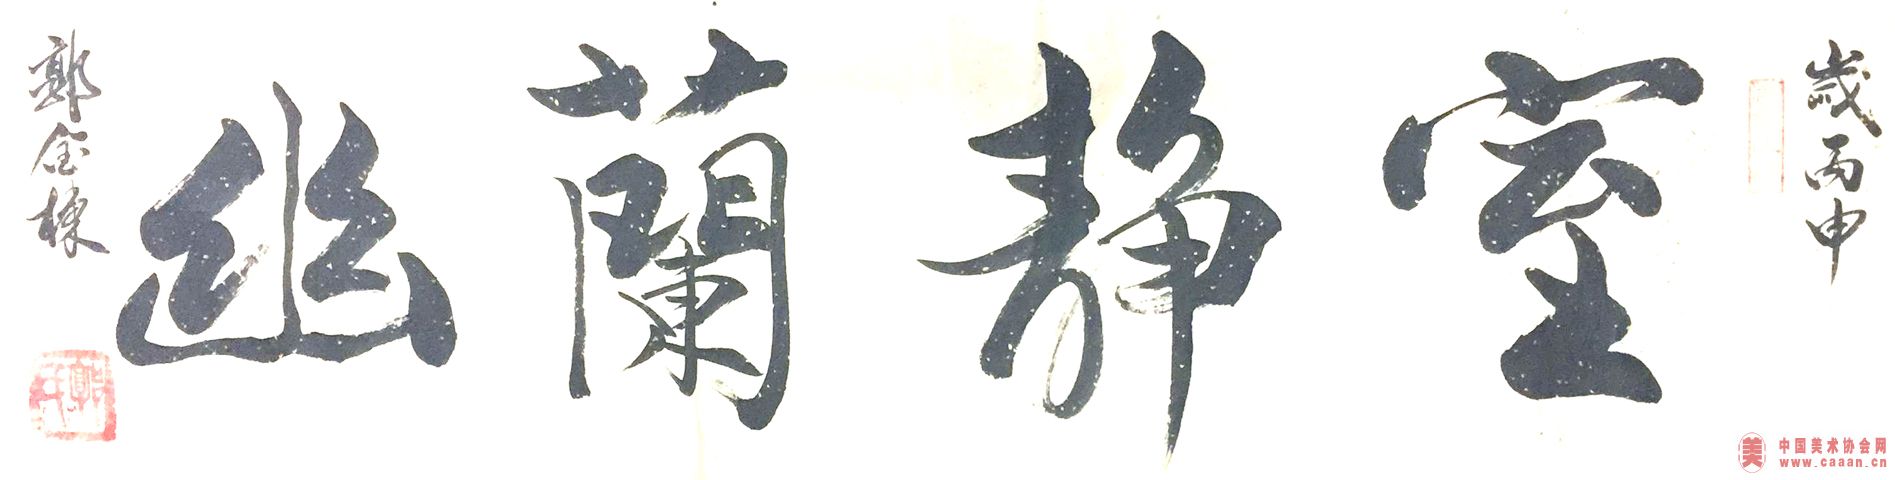 歲丙申
室靜蘭幽
郭金棟
中国美术协会网
www.caaan.cn